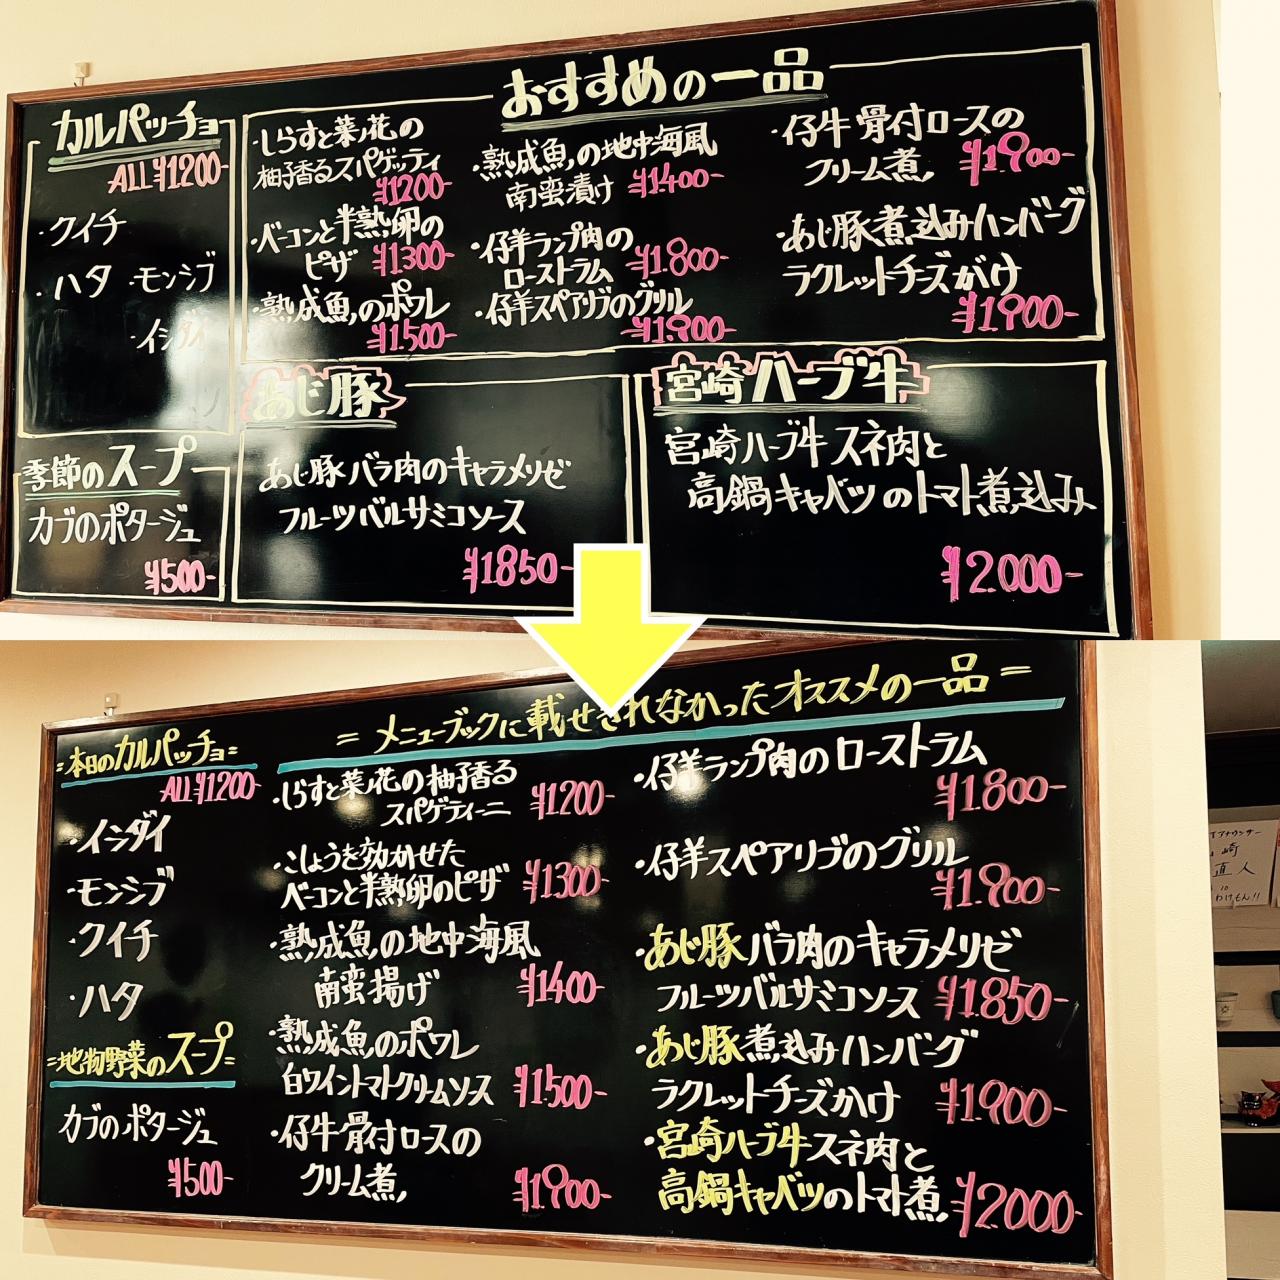 カルパッチョ
ALL ¥1200-
・クイチ
・ハタ ・モンシブ
・イシダイ
季節のスープ
カブのポタージュ
¥500-
おすすめの一品
・しらすと菜ノ花の
柚子香るスパゲッティ
¥1200-
・ベーコンと半熟卵の
ピザ ¥1300-
・熟成魚のポワレ
¥1500-
・熟成魚の地中海風
南蛮漬け ¥1400-
・仔羊ランプ肉の
ローストラム ¥1.800-
・仔羊スペアリブのグリル
¥1.900-
・仔牛骨付ロースの
クリーム煮 ¥1900-
・あじ豚煮込みハンバーグ
ラクレットチーズがけ
¥1900-
あじ豚
あじ豚バラ肉のキャラメリゼ
フルーツバルサミコソース
¥1850-
宮崎ハーブ牛
宮崎ハーブ牛スネ肉と
高鍋キャベツのトマト煮込み
¥2.000-
=本日のカルパッチョ=
ALL ¥1200-
・イシダイ
・モンシブ
・クイチ
・ハタ
=地物野菜のスープ=
カブのポタージュ
¥500-
=メニューブックに載せきれなかったオススメの一品=
・しらすと菜ノ花の柚子香る
スパゲティーニ ¥1200-
・こしょうを効かせた
ベーコンと半熟卵のピザ ¥1300-
・熟成魚の地中海風
南蛮揚げ ¥1400-
・熟成魚のポワレ
白ワイントマトクリームソース ¥1500-
・仔牛骨付ロースの
クリーム煮 ¥1900-
・仔羊ランプ肉のローストラム
¥1.800-
・仔羊スペアリブのグリル
¥1.900-
・あじ豚バラ肉のキャラメリゼ
フルーツバルサミコソース ¥1.850-
・あじ豚煮込みハンバーグ
ラクレットチーズかけ ¥1900-
・宮崎ハーブ牛スネ肉と
高鍋キャベツのトマト煮 ¥2000-
アナウンサー
崎
直人